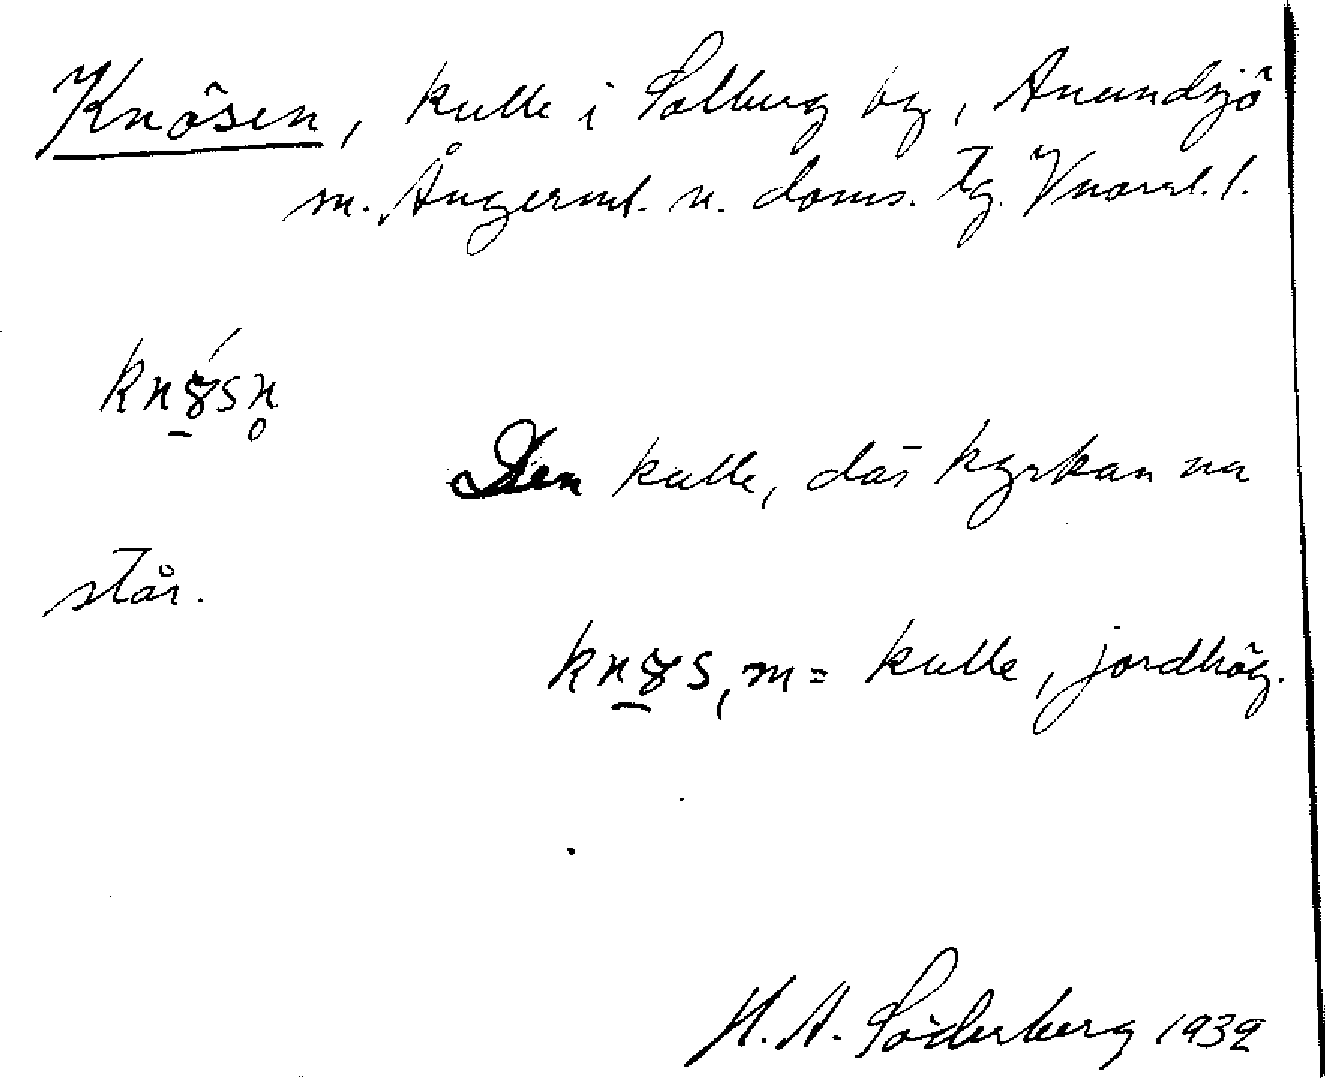 Knösen, kulle i Solberg by, Anundsjö
m. Ångerml. n. doms. tg. Vnorrl. l.
knȣ́sn̥
Den kulle, där kyrkan nu
står.
knȣs, m = kulle, jordhög.
H. A. Söderberg 1932